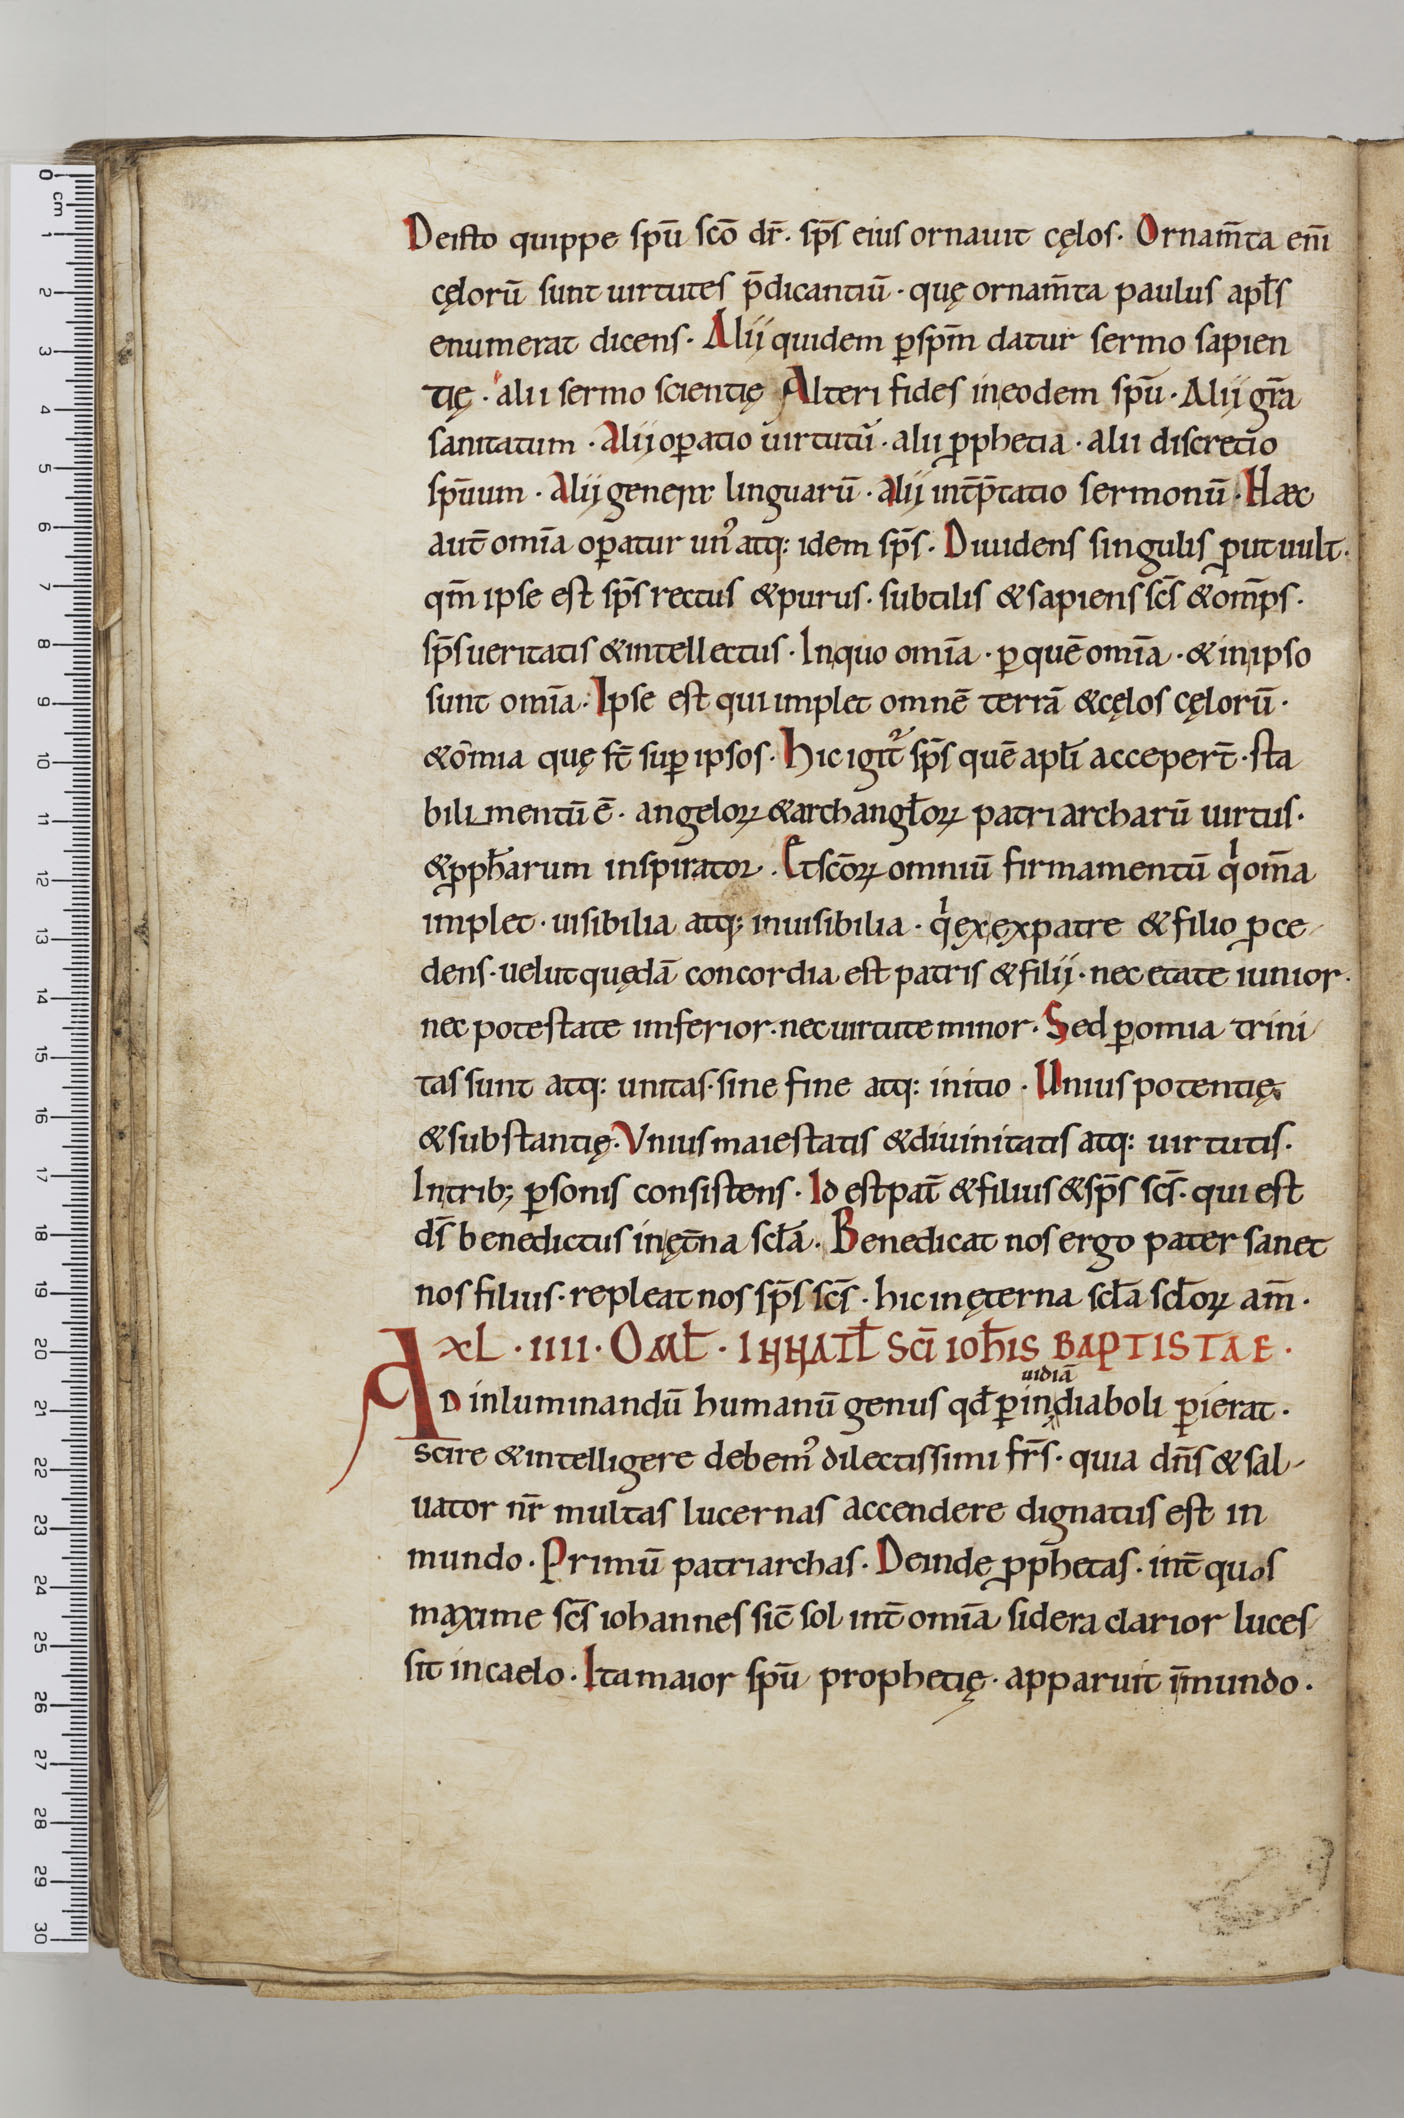 Deisto quippe spū scō dr̄. sp̄s eius ornauit cęlos. Ornam̄ta em̄
cęlorū sunt uirtutes p̄dicantiū. quę ornam̄ta paulus apl̄s
enumerat dicens. Alii quidem ꝑ spm̄ datur sermo sapien
tię. alii sermo scientię Alteri fides in eodem spū. Alii gr̄a
sanitatum. Alii oꝑatio uirtutū. alii ꝓphetia. alii discretio
spūum. Alii genera linguarū. alii int̄p̄tatio sermonū. Haec
aut̄ omīa oꝑatur unꝰ atq: idem sp̄s. Diuidens singulis ꝓut uult.
qm̄ ipse est sp̄s rectus & purus. subtilis & sapiens sc̄s & om̄ps.
sp̄s ueritatis & intellectus. In quo omīa. ꝑ quē omīa. & in ipso
sunt omīa. Ipse est qui implet omnē terrā & cęlos cęlorū.
& ōmia quę st̄ suꝑ ipsos. Hic igit᷑ sp̄s quē apl̄i accepert̄. sta
bilimentū ē. angeloꝝ & archangl̄oꝝ patriarcharū uirtus.
& ꝓph̄arum inspirator. Et scōꝝ omniū firmamentū qⁱ om̄a
implet. uisibilia atq; inuisibilia. qⁱ ex ex patre & filio ꝓce-
dens. uelut quędā concordia est patris & filii. nec etate iunior.
nec potestate inferior. nec uirtute minor. Sed ꝑ omia trini-
tas sunt atq: unitas. sine fine atq: initio. Unius potentię
& substantię. Vnius maiestatis & diuinitatis atq: uirtutis.
In trib; ꝑsonis consistens. Id est pat̄ & filius & sp̄s sc̄s. qui est
ds̄ benedictus in ęt̄na scl̄a. Benedicat nos ergo pater sanet
nos filius. repleat nos sp̄s sc̄s. hic in ęterna scl̄a scl̄oꝝ am̄.
XL. IIII. OML̄. IN NATL̄ SCĪ IOH̄IS BAPTISTAE.
uidiā
AD inluminandū humanū genus qd̄ ꝑ in diaboli ꝑierat.
scire & intelligere debemꝰ dilectissimi frs̄. quia dn̄s & sal-
uator nr̄ multas lucernas accendere dignatus est in
mundo. Primū patriarchas. Deinde ꝓphetas. int̄ quos
maxime sc̄s iohannes sic̄ sol int̄ omīa sidera clarior luces
sit in caelo. Ita maior spū prophetię. apparuit ī mundo.